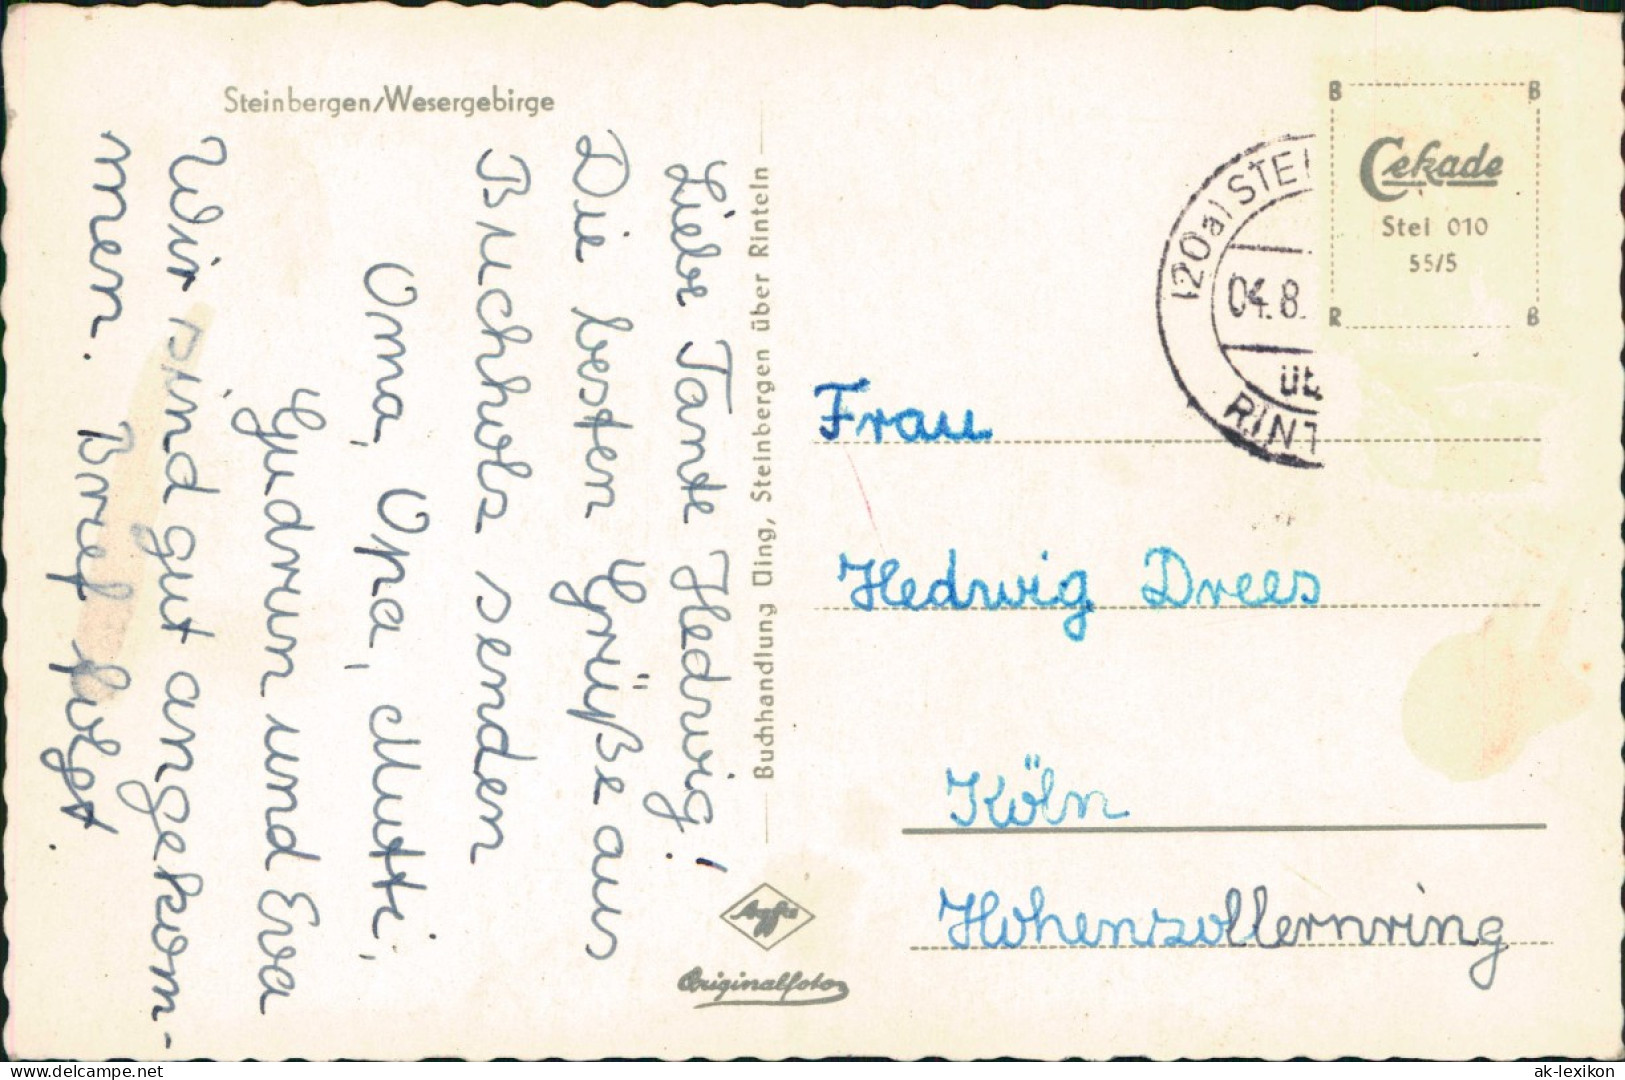 Steinbergen/Wesergebirge
Liebe Tante Hedwig!
Die besten Grüße aus
Buchholz senden
Oma, Opa, Mutti,
Gudrun und Eva
Wir sind gut angekom-
men. Brief folgt.
Buchhandlung Uing, Steinbergen über Rinteln
Agfa
Originalfoto
(20a) STEI
04.8.
üb
RINT
B B
Cekade
Stei 010
55/5
R B
Frau
Hedwig Drees
Köln
Hohenzollernring
www.delcampe.net
ak-lexikon